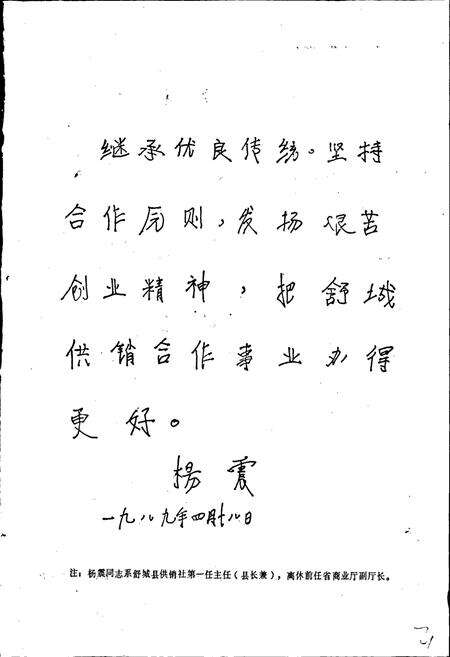 继承优良传统。坚持
合作原则，发扬艰苦
创业精神，把舒城
供销合作事业办得
更好。
杨震
一九八九年四月十八日
注：杨震同志系舒城县供销社第一任主任（县长兼），离休前任省商业厅副厅长。